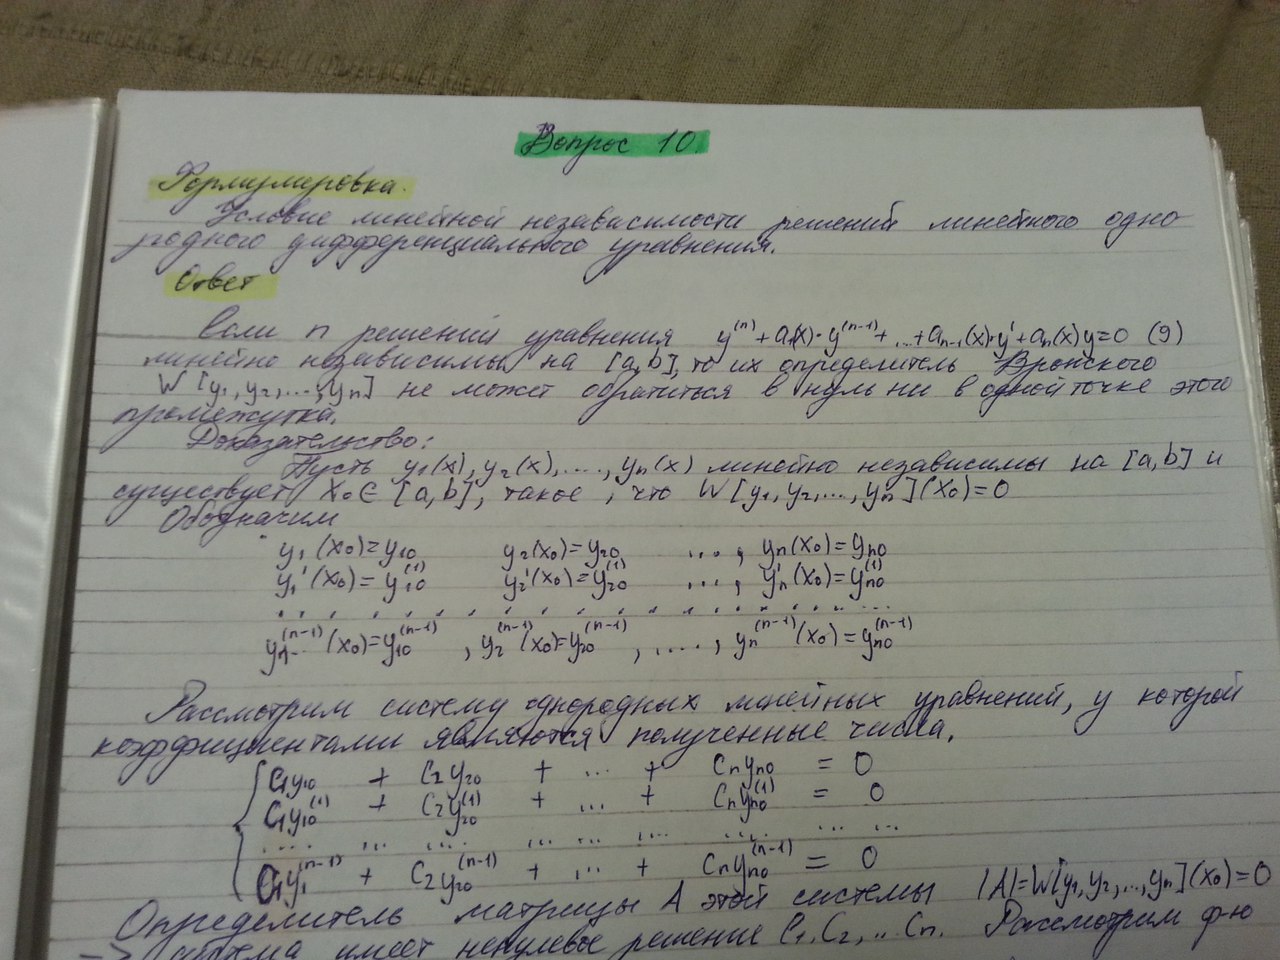 Вопрос 10.
Формулировка.
Условие линейной независимости решений линейного одно-
родного дифференциального уравнения.
Ответ
Если n решений уравнения y⁽ⁿ⁾ + a₁(x)·y⁽ⁿ⁻¹⁾ + ... + aₙ₋₁(x)·y' + aₙ(x)y = 0 (9)
линейно независимы на [a,b], то их определитель Вронского
W[y₁, y₂, ..., yₙ] не может обратиться в нуль ни в одной точке этого
промежутка.
Доказательство:
Пусть y₁(x), y₂(x), ...., yₙ(x) линейно независимы на [a,b] и
существует x₀ ∈ [a,b], такое, что W[y₁, y₂, ..., yₙ](x₀) = 0
Обозначим
y₁(x₀) = y₁₀ y₂(x₀) = y₂₀ ..., yₙ(x₀) = yₙ₀
y₁'(x₀) = y₁₀⁽¹⁾ y₂'(x₀) = y₂₀⁽¹⁾ ..., yₙ'(x₀) = yₙ₀⁽¹⁾
. . . . . . . . . . . . . . . . . . . . .
y₁⁽ⁿ⁻¹⁾(x₀) = y₁₀⁽ⁿ⁻¹⁾, y₂⁽ⁿ⁻¹⁾(x₀) = y₂₀⁽ⁿ⁻¹⁾, ...., yₙ⁽ⁿ⁻¹⁾(x₀) = yₙ₀⁽ⁿ⁻¹⁾
Рассмотрим систему однородных линейных уравнений, у которой
коэффициентами являются полученные числа.
C₁y₁₀ + C₂y₂₀ + ... + Cₙyₙ₀ = 0
C₁y₁₀⁽¹⁾ + C₂y₂₀⁽¹⁾ + ... + Cₙyₙ₀⁽¹⁾ = 0
.... ... .... ... ... .... .... ... ...
C₁y₁⁽ⁿ⁻¹⁾ + C₂y₂₀⁽ⁿ⁻¹⁾ + ... + Cₙyₙ₀⁽ⁿ⁻¹⁾ = 0
Определитель матрицы A этой системы |A| = W[y₁, y₂, ..., yₙ](x₀) = 0
=> система имеет ненулевое решение C₁, C₂, .. Cₙ. Рассмотрим ф-ю